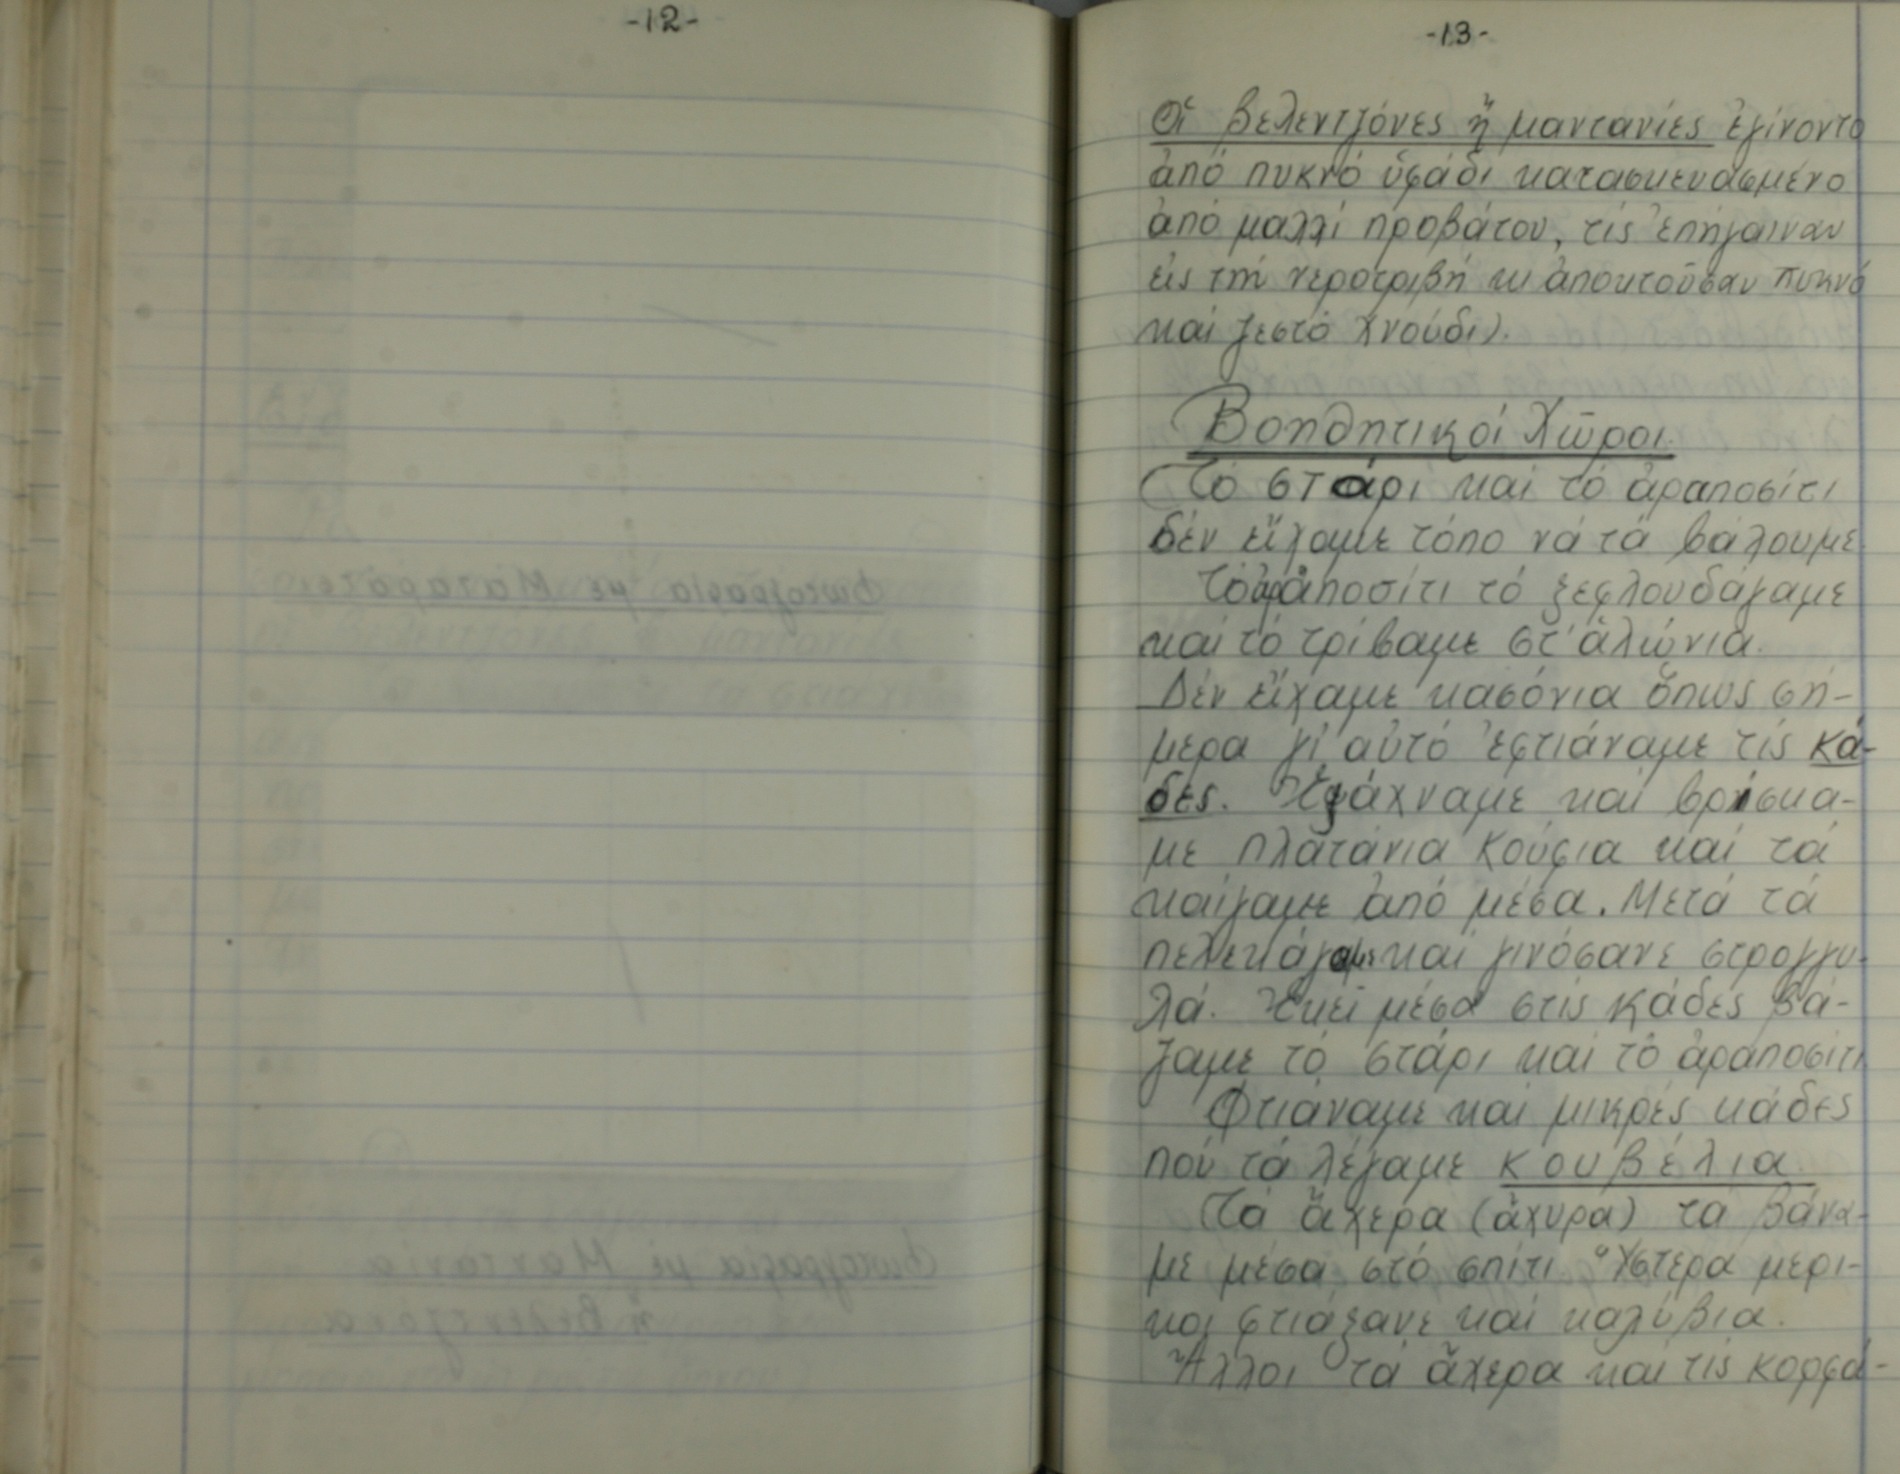 -12-
-13-
Οἱ βελεντζόνες ἤ μαντανίες ἐγίνοντο
ἀπό πυκνό ὑφάδι κατασκευασμένο
ἀπό μαλλί προβάτου, τίς ἐπήγαιναν
εἰς τήν νεροτριβή κι ἀποκτοῦσαν πυκνό
καί ζεστό χνούδι).
Βοηθητικοί Χῶροι.
Τό στάρι καί τό ἀραποσίτι
δέν εἴχαμε τόπο νά τά βάλουμε.
Τό ἀραποσίτι τό ξεφλουδάγαμε
καί τό τρίβαμε στ' ἁλώνια.
Δέν εἴχαμε κασόνια ὅπως σή-
μερα γι' αὐτό ἐφτιάναμε τίς κά-
δες. Ἐψάχναμε καί βρίσκα-
με πλατάνια κούφια καί τά
καίγαμε ἀπό μέσα. Μετά τά
πελεκάγαμε καί γινόσανε στρογγυ-
λά. Ἐκεῖ μέσα στίς κάδες βά-
ζαμε τό στάρι καί τό ἀραποσίτι
Φτιάναμε καί μικρές κάδες
πού τά λέγαμε κουβέλια.
Τά ἄχερα (ἄχυρα) τά βάνα-
με μέσα στό σπίτι Ὕστερα μερι-
κοί φτιάξανε καί καλύβια.
Ἄλλοι τά ἄχερα καί τίς κορφά-